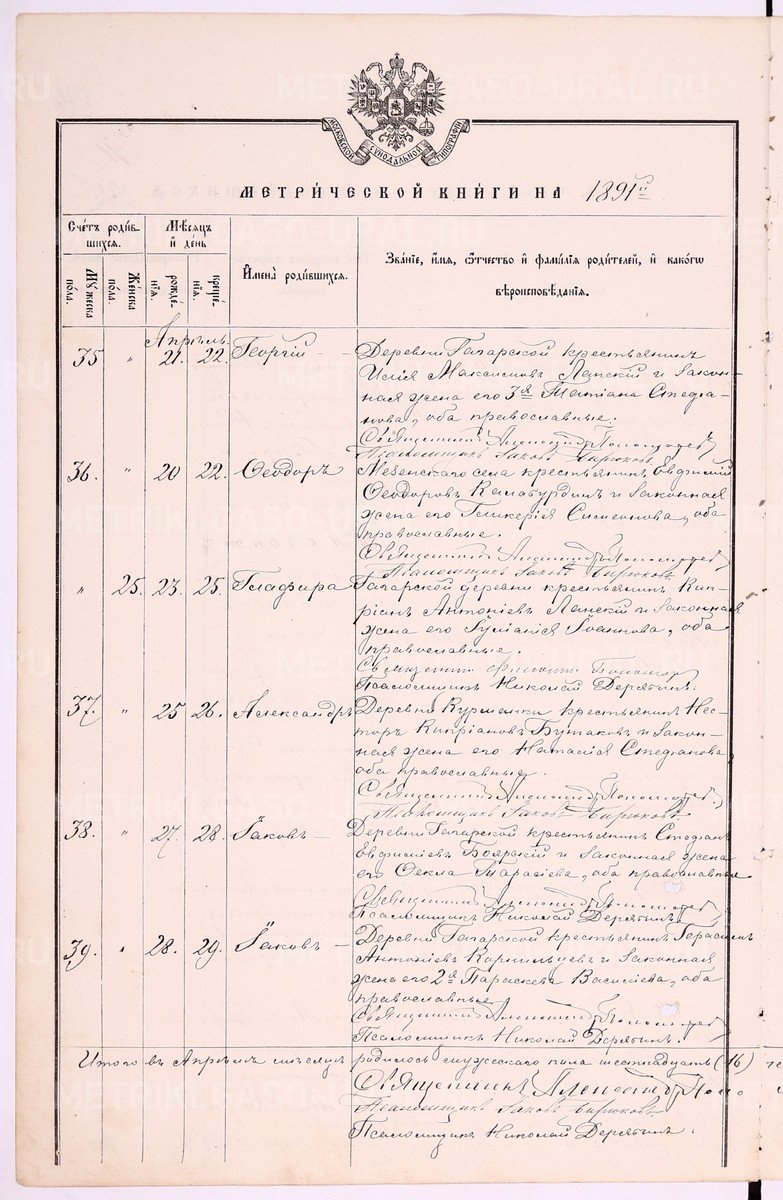 МОСКОВСКОЙ СѴНОДАЛЬНОЙ ТИПОГРАФІИ
МЕТРИ́ЧЕСКОЙ КНИ́ГИ НА 1891й
Сче́тъ роди́вшихся.
Мѣ́сяцъ и҆ де́нь
И҆мена̀ роди́вшихся.
Зва́нїе, и҆́мя, ѻ҆́тчество и҆ фами́лїя роди́телей, и҆ како́гѡ
вѣроисповѣ́данїя.
Мꙋжеска по́ла.
Же́нска по́ла.
рожде́нїя.
креще́нїя.
Апрѣль
35 " 21. 22. Георгій — Деревни Гагарской крестьянинъ
Илія Максимовъ Ланскій и закон-
ная жена его 3я Татіана Стефа-
нова, оба православные.
Священникъ
Псаломщикъ Іаковъ Бирюковъ
36. " 20 22. Ѳеодоръ Мезенскаго села крестьянинъ Евфимій
Ѳеодоровъ и законная
жена его Гликерія Симеонова, оба
православные.
Священникъ
Псаломщикъ Іаковъ Бирюковъ
" 25. 23. 25. Глафира Гагарской деревни крестьянинъ Кип-
ріанъ Антоніевъ Ланскій и законная
жена его Іуліанія Іоаннова, оба
православные.
Священникъ
Псаломщикъ Николай Дерябинъ.
37. " 25 26. Александръ Деревни Курманки крестьянинъ Нес-
торъ Кипріановъ Бутаковъ и закон-
ная жена его Наталія Стефанова
оба православные.
Священникъ
Псаломщикъ Іаковъ Бирюковъ
38. " 27. 28. Іаковъ — Деревни Гагарской крестьянинъ Стефанъ
Евфиміевъ Боярскій и законная жена
его Ѳекла Тарасіева, оба православные
Священникъ
Псаломщикъ Николай Дерябинъ
39. " 28. 29. Іаковъ — Деревни Гагарской крестьянинъ Герасимъ
Антоніевъ Корнильцевъ и законная
жена его 2я Параскева Василіева, оба
православные
Священникъ
Псаломщикъ Николай Дерябинъ.
Итого въ Апрѣлѣ мѣсяцѣ родилось мужескаго пола шестнадцать (16)
Священникъ
Псаломщикъ Іаковъ Бирюковъ
Псаломщикъ Николай Дерябинъ.